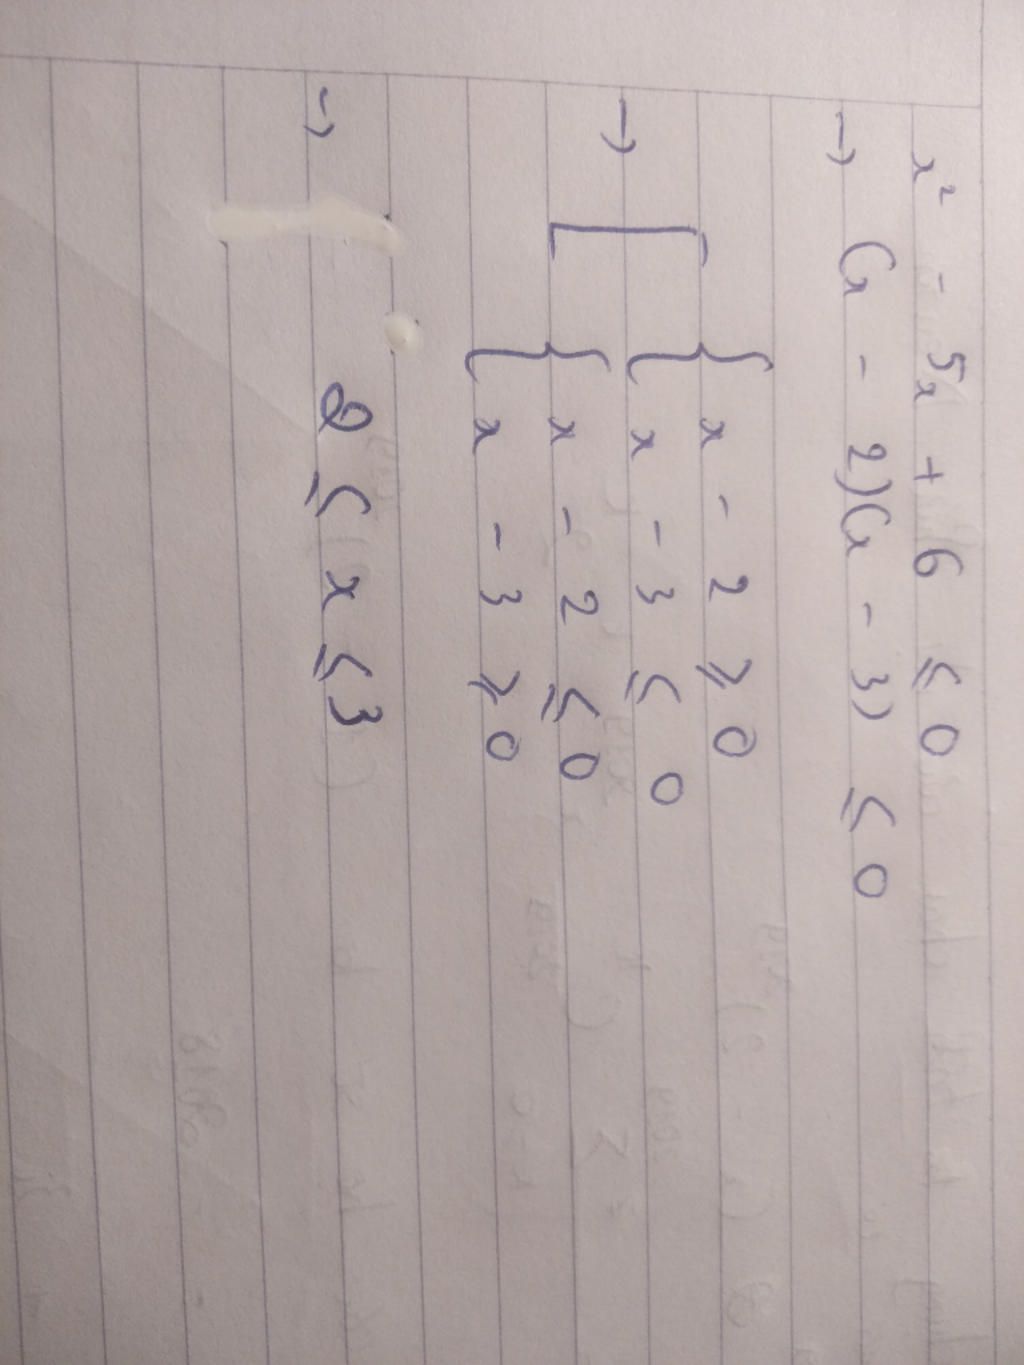 x² - 5x + 6 ≤ 0
→ (x - 2)(x - 3) ≤ 0
x - 2 ≥ 0
x - 3 ≤ 0
→ [ { x - 2 ≤ 0
x - 3 ≥ 0
→ 2 ≤ x ≤ 3